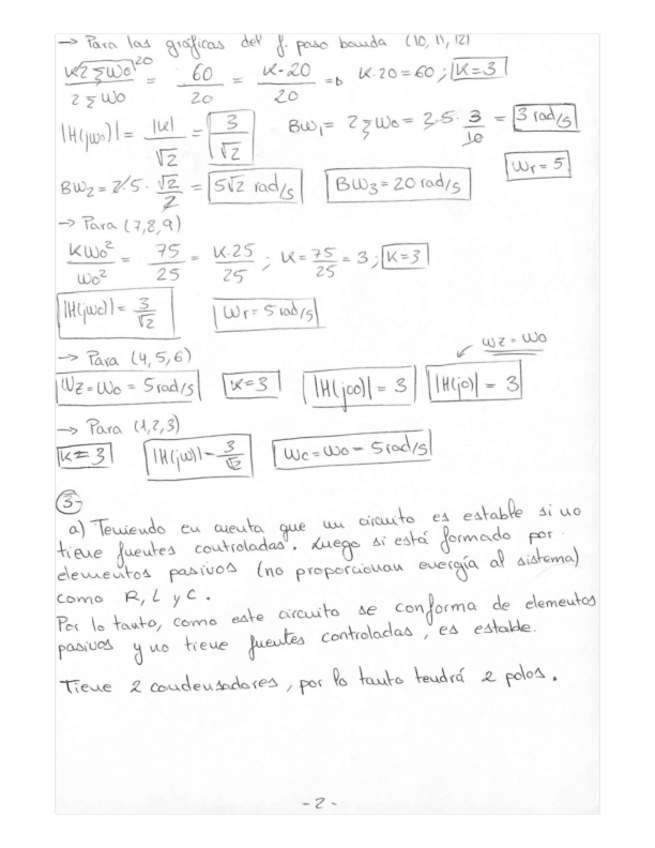 → Para las gráficas del f. paso banda (10, 11, 12)
K2ξω0 20 / 2ξω0 = 60/20 = K·20/20 ⇒ K·20 = 60; K=3
|H(jω0)| = |K|/√2 = 3/√2 BW1 = 2ξω0 = 2·5·3/10 = 3 rad/s
Wr = 5
BW2 = 2·5·√2/2 = 5√2 rad/s BW3 = 20 rad/s
→ Para (7,8,9)
KW0²/W0² = 75/25 = K·25/25; K = 75/25 = 3; K=3
|H(jωc)| = 3/√2 Wr = 5 rad/s
→ Para (4,5,6) WZ = W0
WZ = W0 = 5 rad/s K=3 |H(j∞)| = 3 |H(j0)| = 3
→ Para (1,2,3)
K = 3 |H(jω)| = 3/√2 Wc = W0 = 5 rad/s
3-
a) Teniendo en cuenta que un circuito es estable si no
tiene fuentes controladas. Luego si está formado por
elementos pasivos (no proporcionan energía al sistema)
como R, L y C.
Por lo tanto, como este circuito se conforma de elementos
pasivos y no tiene fuentes controladas, es estable.
Tiene 2 condensadores, por lo tanto tendrá 2 polos.
-2-